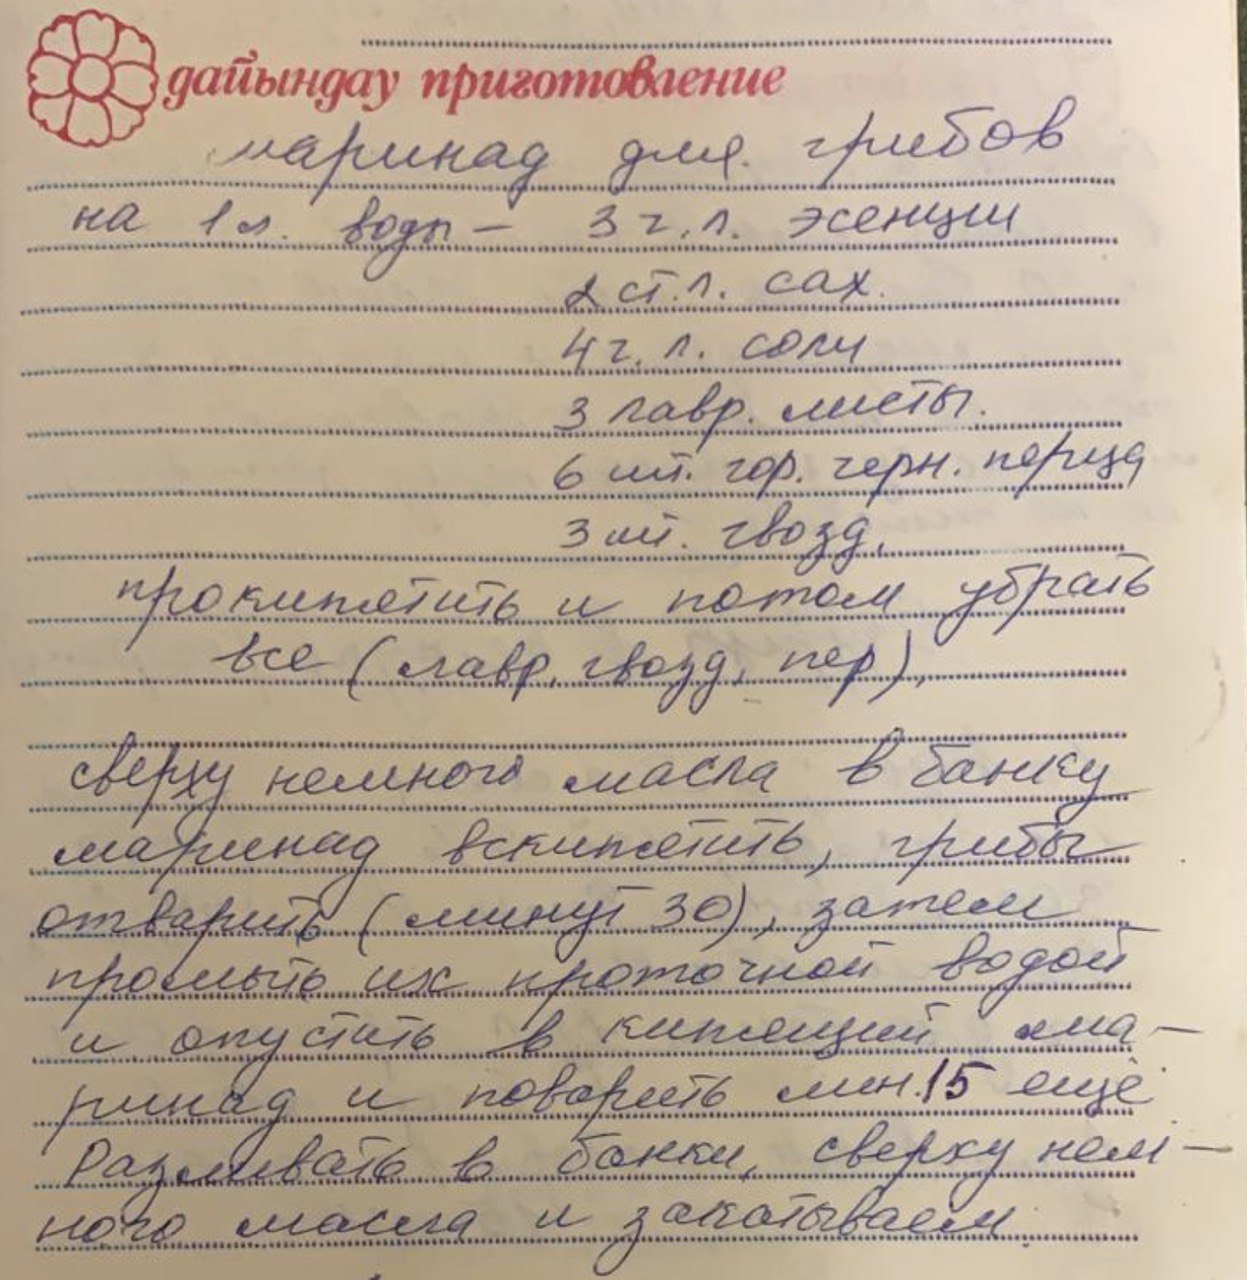 дайындау приготовление
маринад для грибов
на 1 л. воды – 3 ч.л. эсенции
2 ст.л. сах.
4 ч.л. соли
3 лавр. листы.
6 шт. гор. черн. перца
3 шт. гвозд.
прокипятить и потом убрать
все (лавр. гвозд. пер),
сверху немного масла в банку
маринад вскипятить, грибы
отварить (минут 30), затем
промыть их проточной водой
и опустить в кипящий ма-
ринад и поварить мин. 15 ещё
Разливать в банки, сверху нем-
ного масла и закатываем